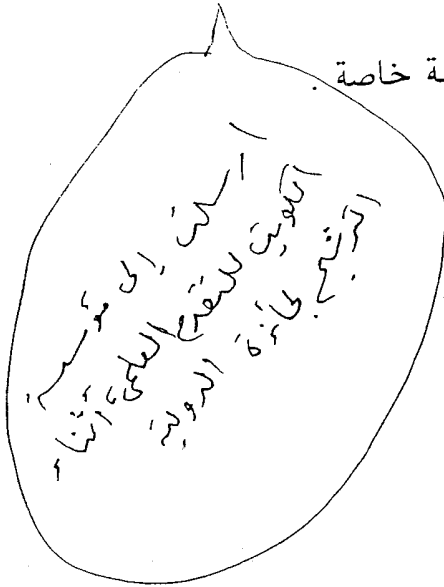 ة خاصة .
أرسلت إلى مؤسسة
الكويت للتقدم العلمي أثناء
الترشيح لجائزة الدولية